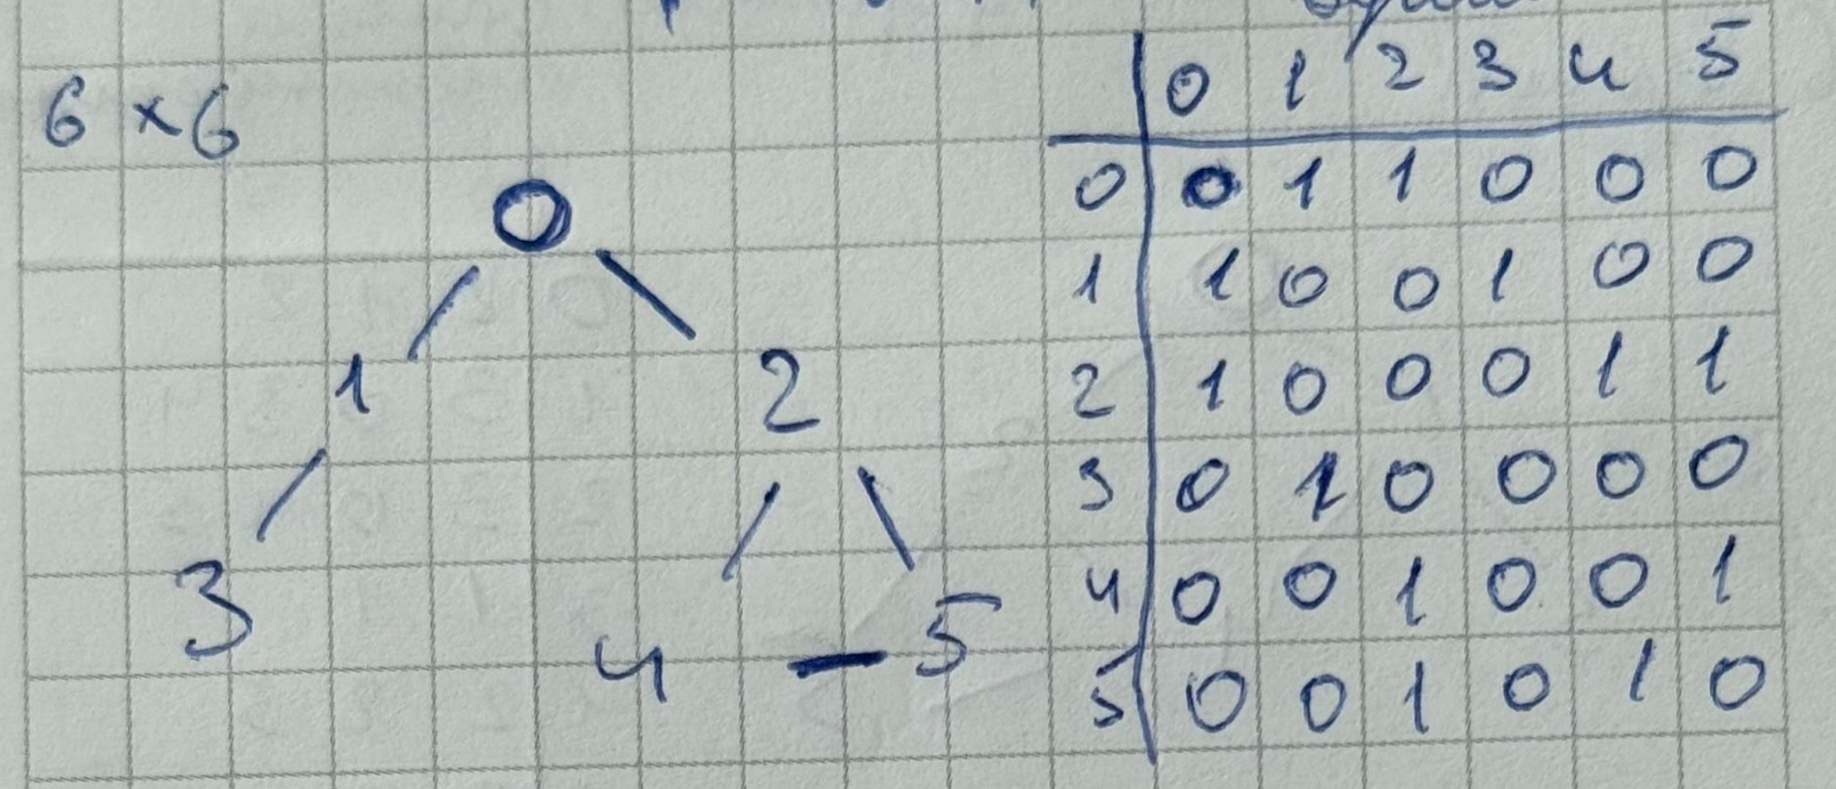 6 × 6
0
1 2
3 4 5
0 1 2 3 4 5
0 0 1 1 0 0 0
1 1 0 0 1 0 0
2 1 0 0 0 1 1
3 0 1 0 0 0 0
4 0 0 1 0 0 1
5 0 0 1 0 1 0